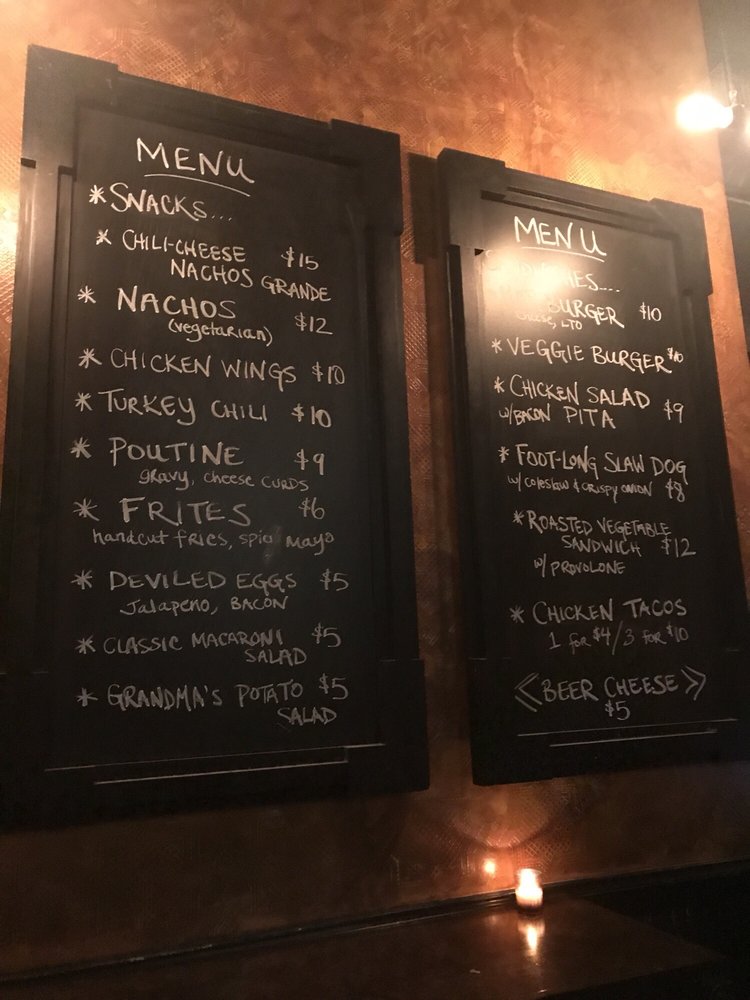 MENU
*SNACKS...
* CHILI-CHEESE $15
NACHOS GRANDE
* NACHOS
(vegetarian) $12
* CHICKEN WINGS $10
* TURKEY CHILI $10
* POUTINE $9
gravy, cheese CURDS
* FRITES $6
handcut fries, spicy mayo
* DEVILED EGGS $5
Jalapeno, BACON
* CLASSIC MACARONI $5
SALAD
* GRANDMA'S POTATO $5
SALAD
MENU
BURGER $10
cheese, LTO
* VEGGIE BURGER $10
* CHICKEN SALAD
w/BACON PITA $9
* FOOT-LONG SLAW DOG
w/ coleslaw & CRISPY ONION $8
* ROASTED VEGETABLE
SANDWICH $12
w/ PROVOLONE
* CHICKEN TACOS
1 for $4/3 FOR $10
<<BEER CHEESE>>
$5